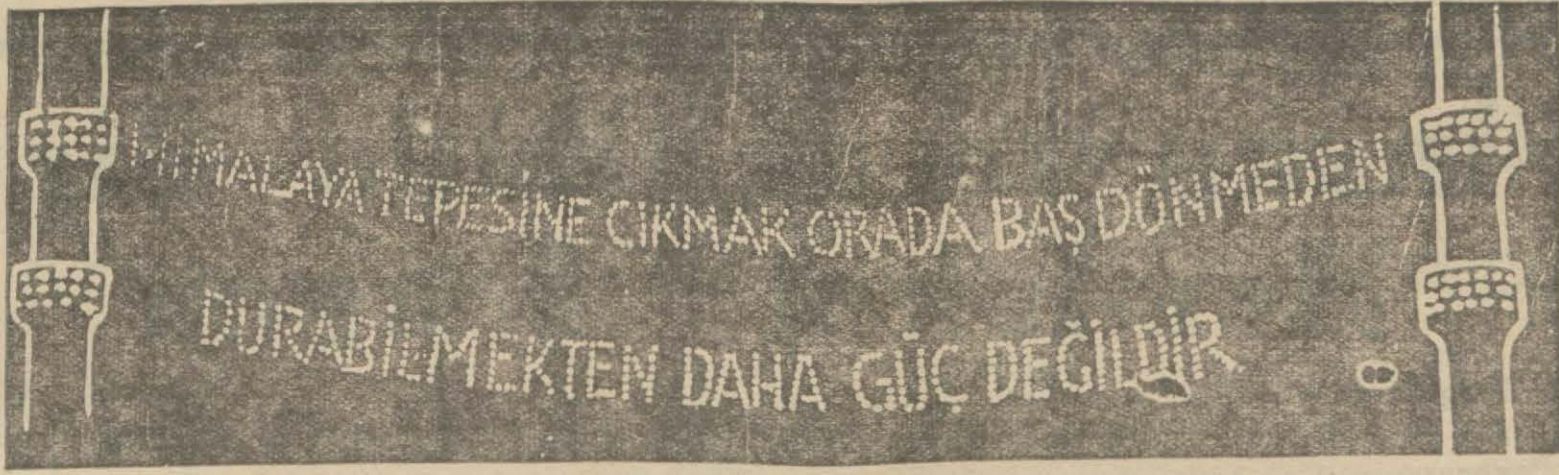 HİMALAYA TEPESİNE CIKMAK ORADA BAŞ DÖNMEDEN
DURABİLMEKTEN DAHA GÜÇ DEĞİLDİR